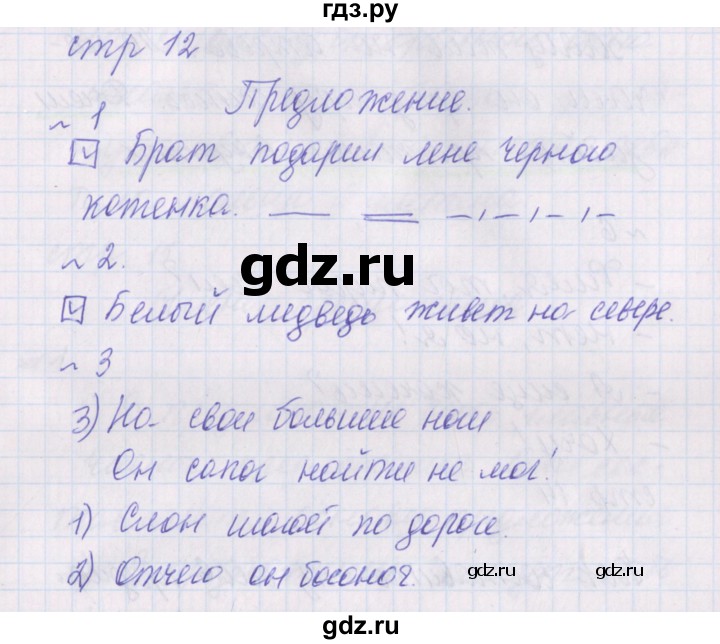 гдз.ру
стр 12
Предложение.
~ 1
ч Брат подарил мне черного
котенка.
~ 2.
gdz.ru
ч Белый медведь живет на севере.
~ 3
3) На свои большие ноги
Он сапог найти не мог!
1) Слон шагает по дороге.
2) Отчего он босоног.
gdz.ru
gdz.ru
gdz.ru